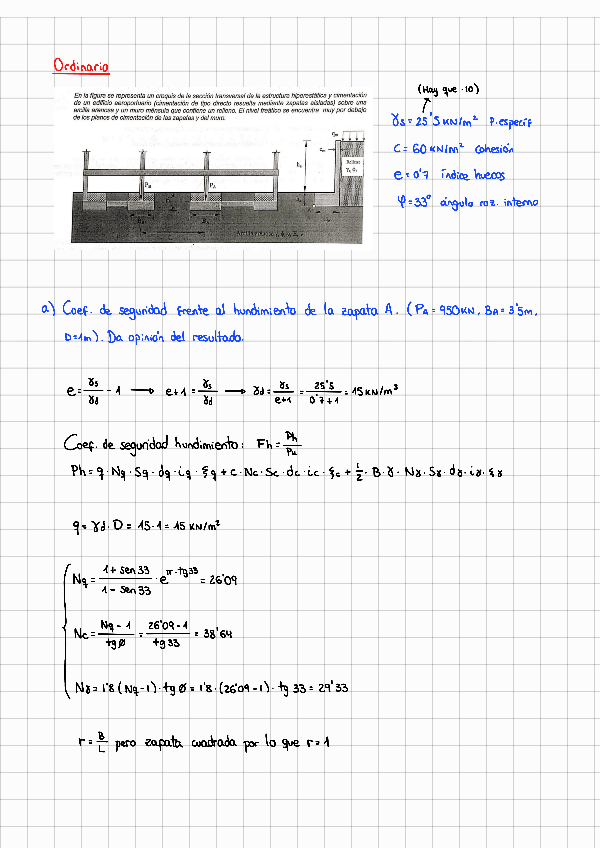 Ordinario
En la figura se representa un croquis de la sección transversal de la estructura hiperestática y cimentación
de un edificio aeroportuario (cimentación de tipo directo resuelta mediante zapatas aisladas) sobre una
arcilla arenosa y un muro ménsula que contiene un relleno. El nivel freático se encuentra muy por debajo
de los planos de cimentación de las zapatas y del muro.
(Hay que ·10)
γs = 25'5 KN/m² P. específ
C = 60 KN/m² cohesión
e = 0'7 índice huecos
φ = 33° ángulo roz. interno
Relleno
P_A
a) Coef. de seguridad frente al hundimiento de la zapata A. (PA = 950KN, BA = 3'5m,
D=1m). Da opinión del resultado.
e = γs/γd - 1 → e+1 = γs/γd → γd = γs/(e+1) = 25'5/(0'7+1) = 15 KN/m³
Coef. de seguridad hundimiento: Fh = Ph/Pu
Ph = q · Nq · Sq · dq · iq · ξq + c · Nc · Sc · dc · ic · ξc + 1/2 · B · γ · Nγ · Sγ · dγ · iγ · ξγ
q = γd · D = 15 · 1 = 15 KN/m²
Nq = (1 + sen 33)/(1 - sen 33) · e^(π·tg33) = 26'09
Nc = (Nq - 1)/(tg Ø) = (26'09 - 1)/(tg 33) = 38'64
Nγ = 1'8 (Nq - 1) · tg Ø = 1'8 · (26'09 - 1) · tg 33 = 29'33
r = B/L pero zapata cuadrada por lo que r = 1